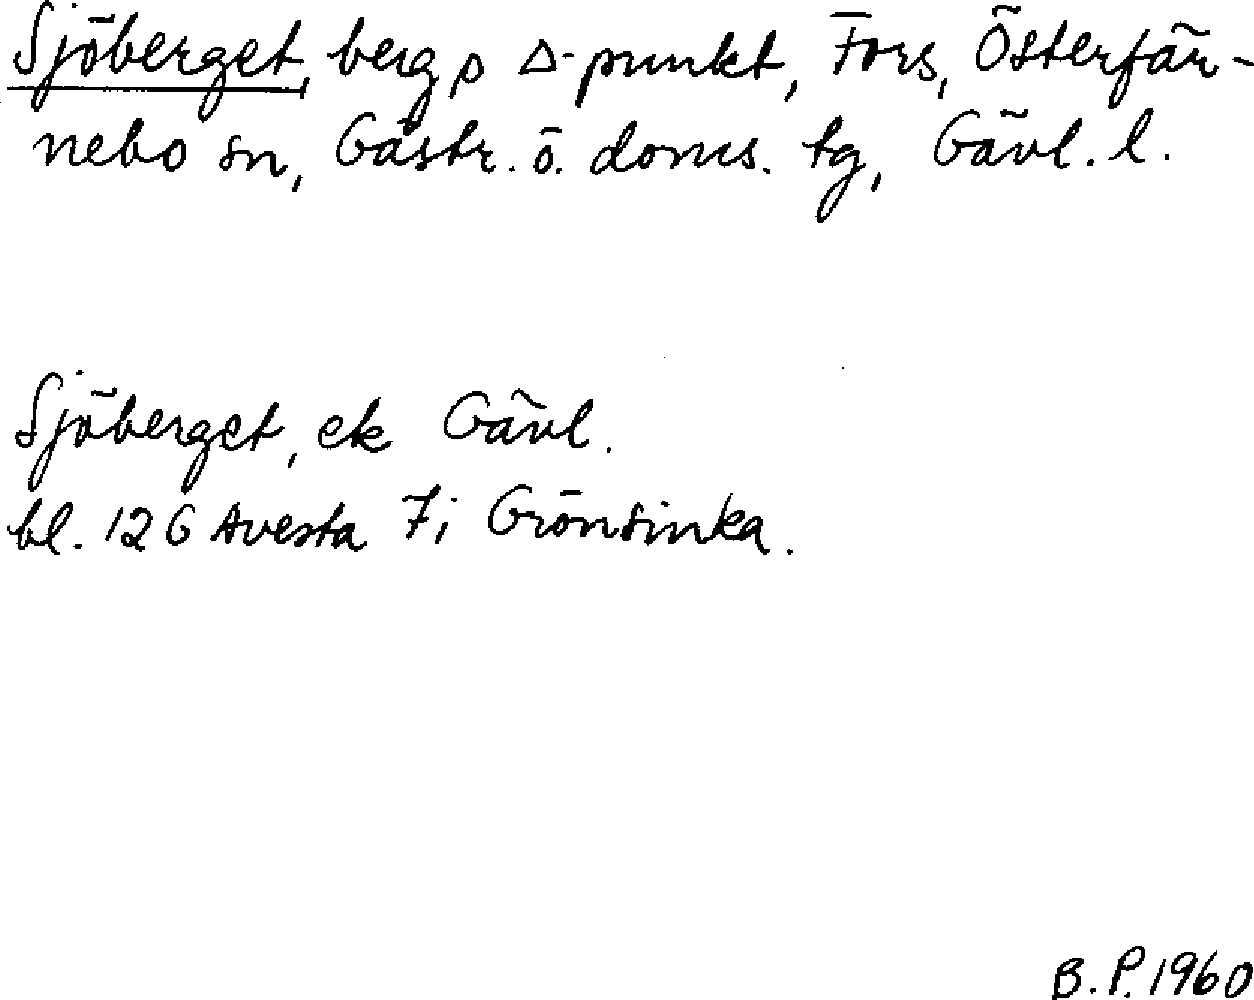 Sjöberget, berg, Δ-punkt, Fors, Österfär-
nebo sn, Gästr. ö. doms. tg, Gävl. l.
Sjöberget, ek Gävl.
bl. 12 G Avesta 7i Grönsinka.
B. P. 1960